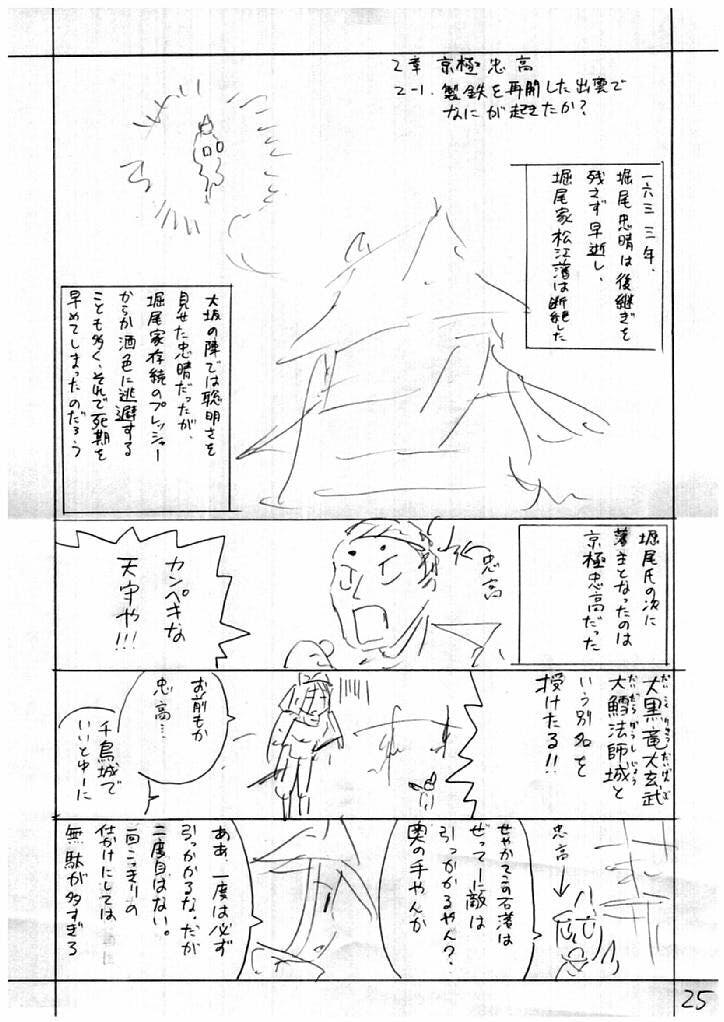 2章 京極忠高
2-1. 製鉄を再開した出雲で
なにが起きたか?
一六三三年、
堀尾忠晴は後継ぎを
残さず早逝し、
堀尾家松江藩は断絶した
大坂の陣では聡明さを
見せた忠晴だったが、
堀尾家存続のプレッシャー
からか酒色に逃避する
ことも多く、それで死期を
早めてしまったのだろう
堀尾氏の次に
藩主となったのは
京極忠高だった
忠高
カンペキな
天守や!!!
大黒竜大玄武
大鱈法師城と
だいだらぼうしじょう
いう別名を
授けたる!!
お前もか
忠高…
千鳥城で
いいとゆーに
忠高
せやかてこの石濱は
ぜってー敵は
引っかかるやん?
奥の手やんか
ああ、一度は必ず
引っかかるな。だが
二度目はない。
一回こっきりの
仕かけにしては
無駄が多すぎる
25